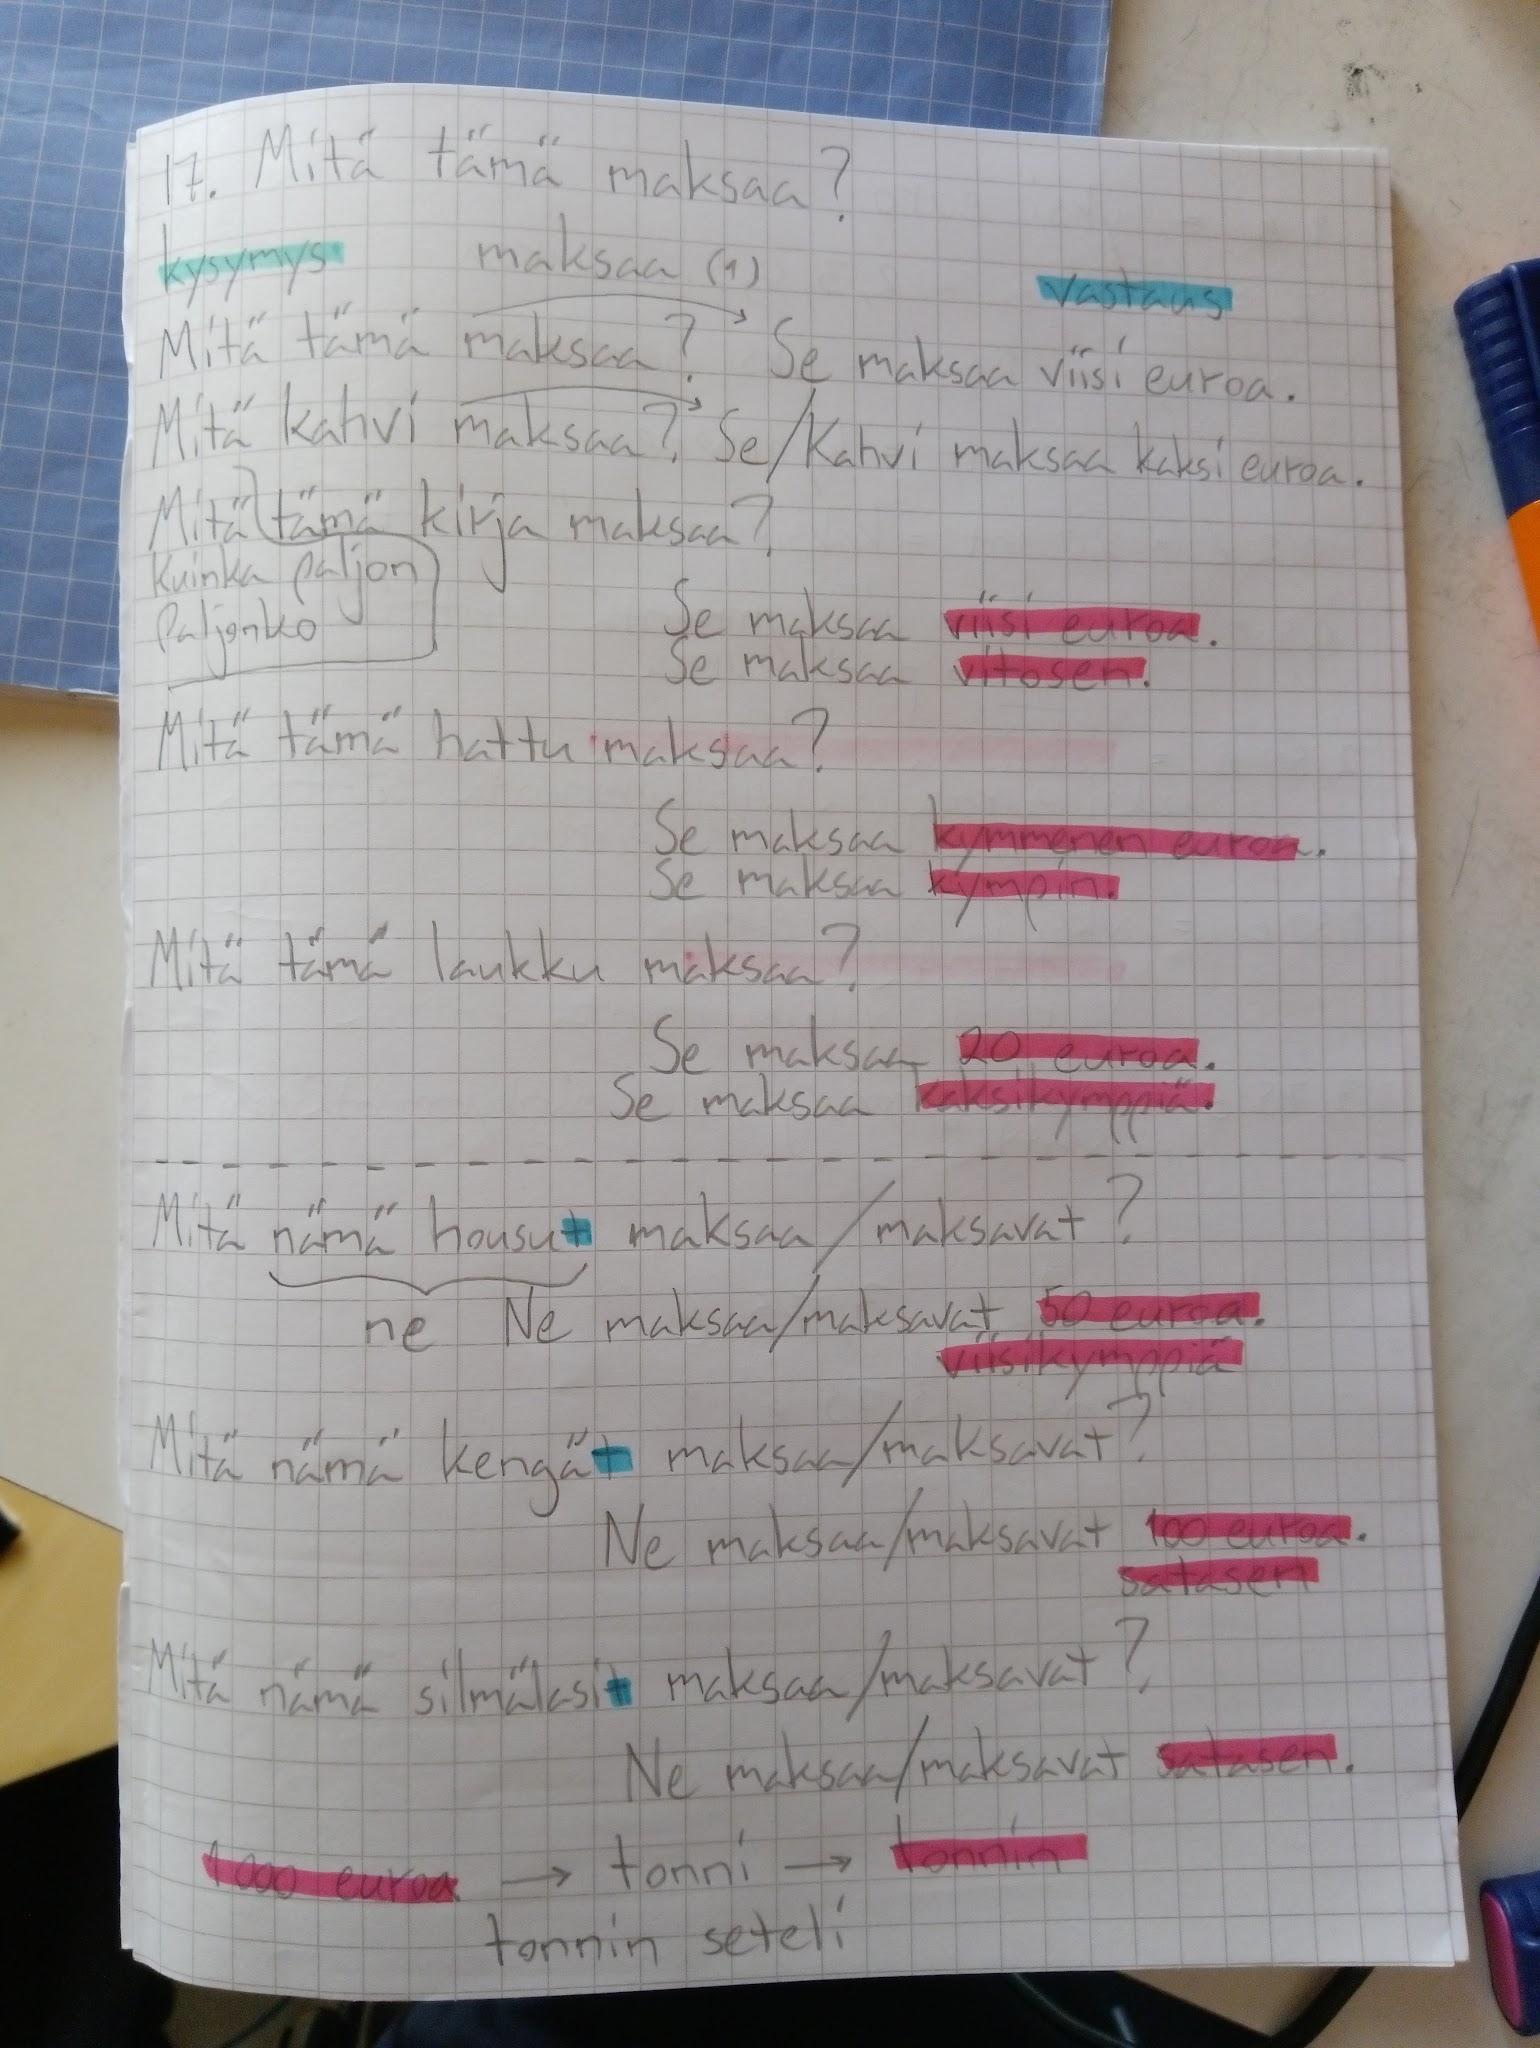 17. Mitä tämä maksaa?
kysymys maksaa (1) vastaus
Mitä tämä maksaa? → Se maksaa viisi euroa.
Mitä kahvi maksaa? → Se/Kahvi maksaa kaksi euroa.
Mitä tämä kirja maksaa?
Kuinka paljon
Paljonko
Se maksaa viisi euroa.
Se maksaa vitosen.
Mitä tämä hattu maksaa?
Se maksaa kymmenen euroa.
Se maksaa kympin.
Mitä tämä laukku maksaa?
Se maksaa 20 euroa.
Se maksaa kaksikymppiä.
Mitä nämä housut maksaa/maksavat?
ne Ne maksaa/maksavat 50 euroa.
viisikymppiä
Mitä nämä kengät maksaa/maksavat?
Ne maksaa/maksavat 100 euroa.
satasen
Mitä nämä silmälasit maksaa/maksavat?
Ne maksaa/maksavat satasen.
1 000 euroa → tonni → tonnin
tonnin seteli